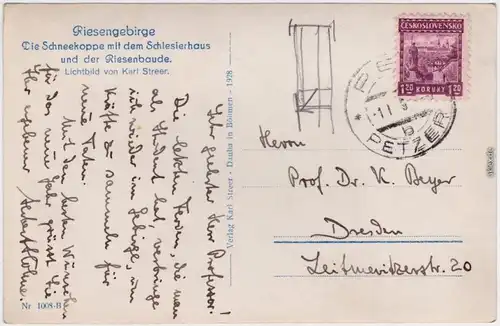 Riesengebirge
Die Schneekoppe mit dem Schlesierhaus
und der Riesenbaude.
Lichtbild von Karl Streer.
Sehr geehrter Herr Professor!
Die letzten Ferien, die man
als Student hat, verbringe
ich wieder im Gebirge, um
Kräfte zu sammeln für
neue Taten.
Mit den besten Wünschen
für das neue Jahr grüsst Sie
Ihr ergebener
Nr 1008-B
Verlag Karl Streer - Dauba in Böhmen - 1928
ČESKOSLOVENSKO
1.20 KORUNY 1.20
PETZER
Herrn
Prof. Dr. K. Beyer
Dresden
Leitmeritzerstr. 20